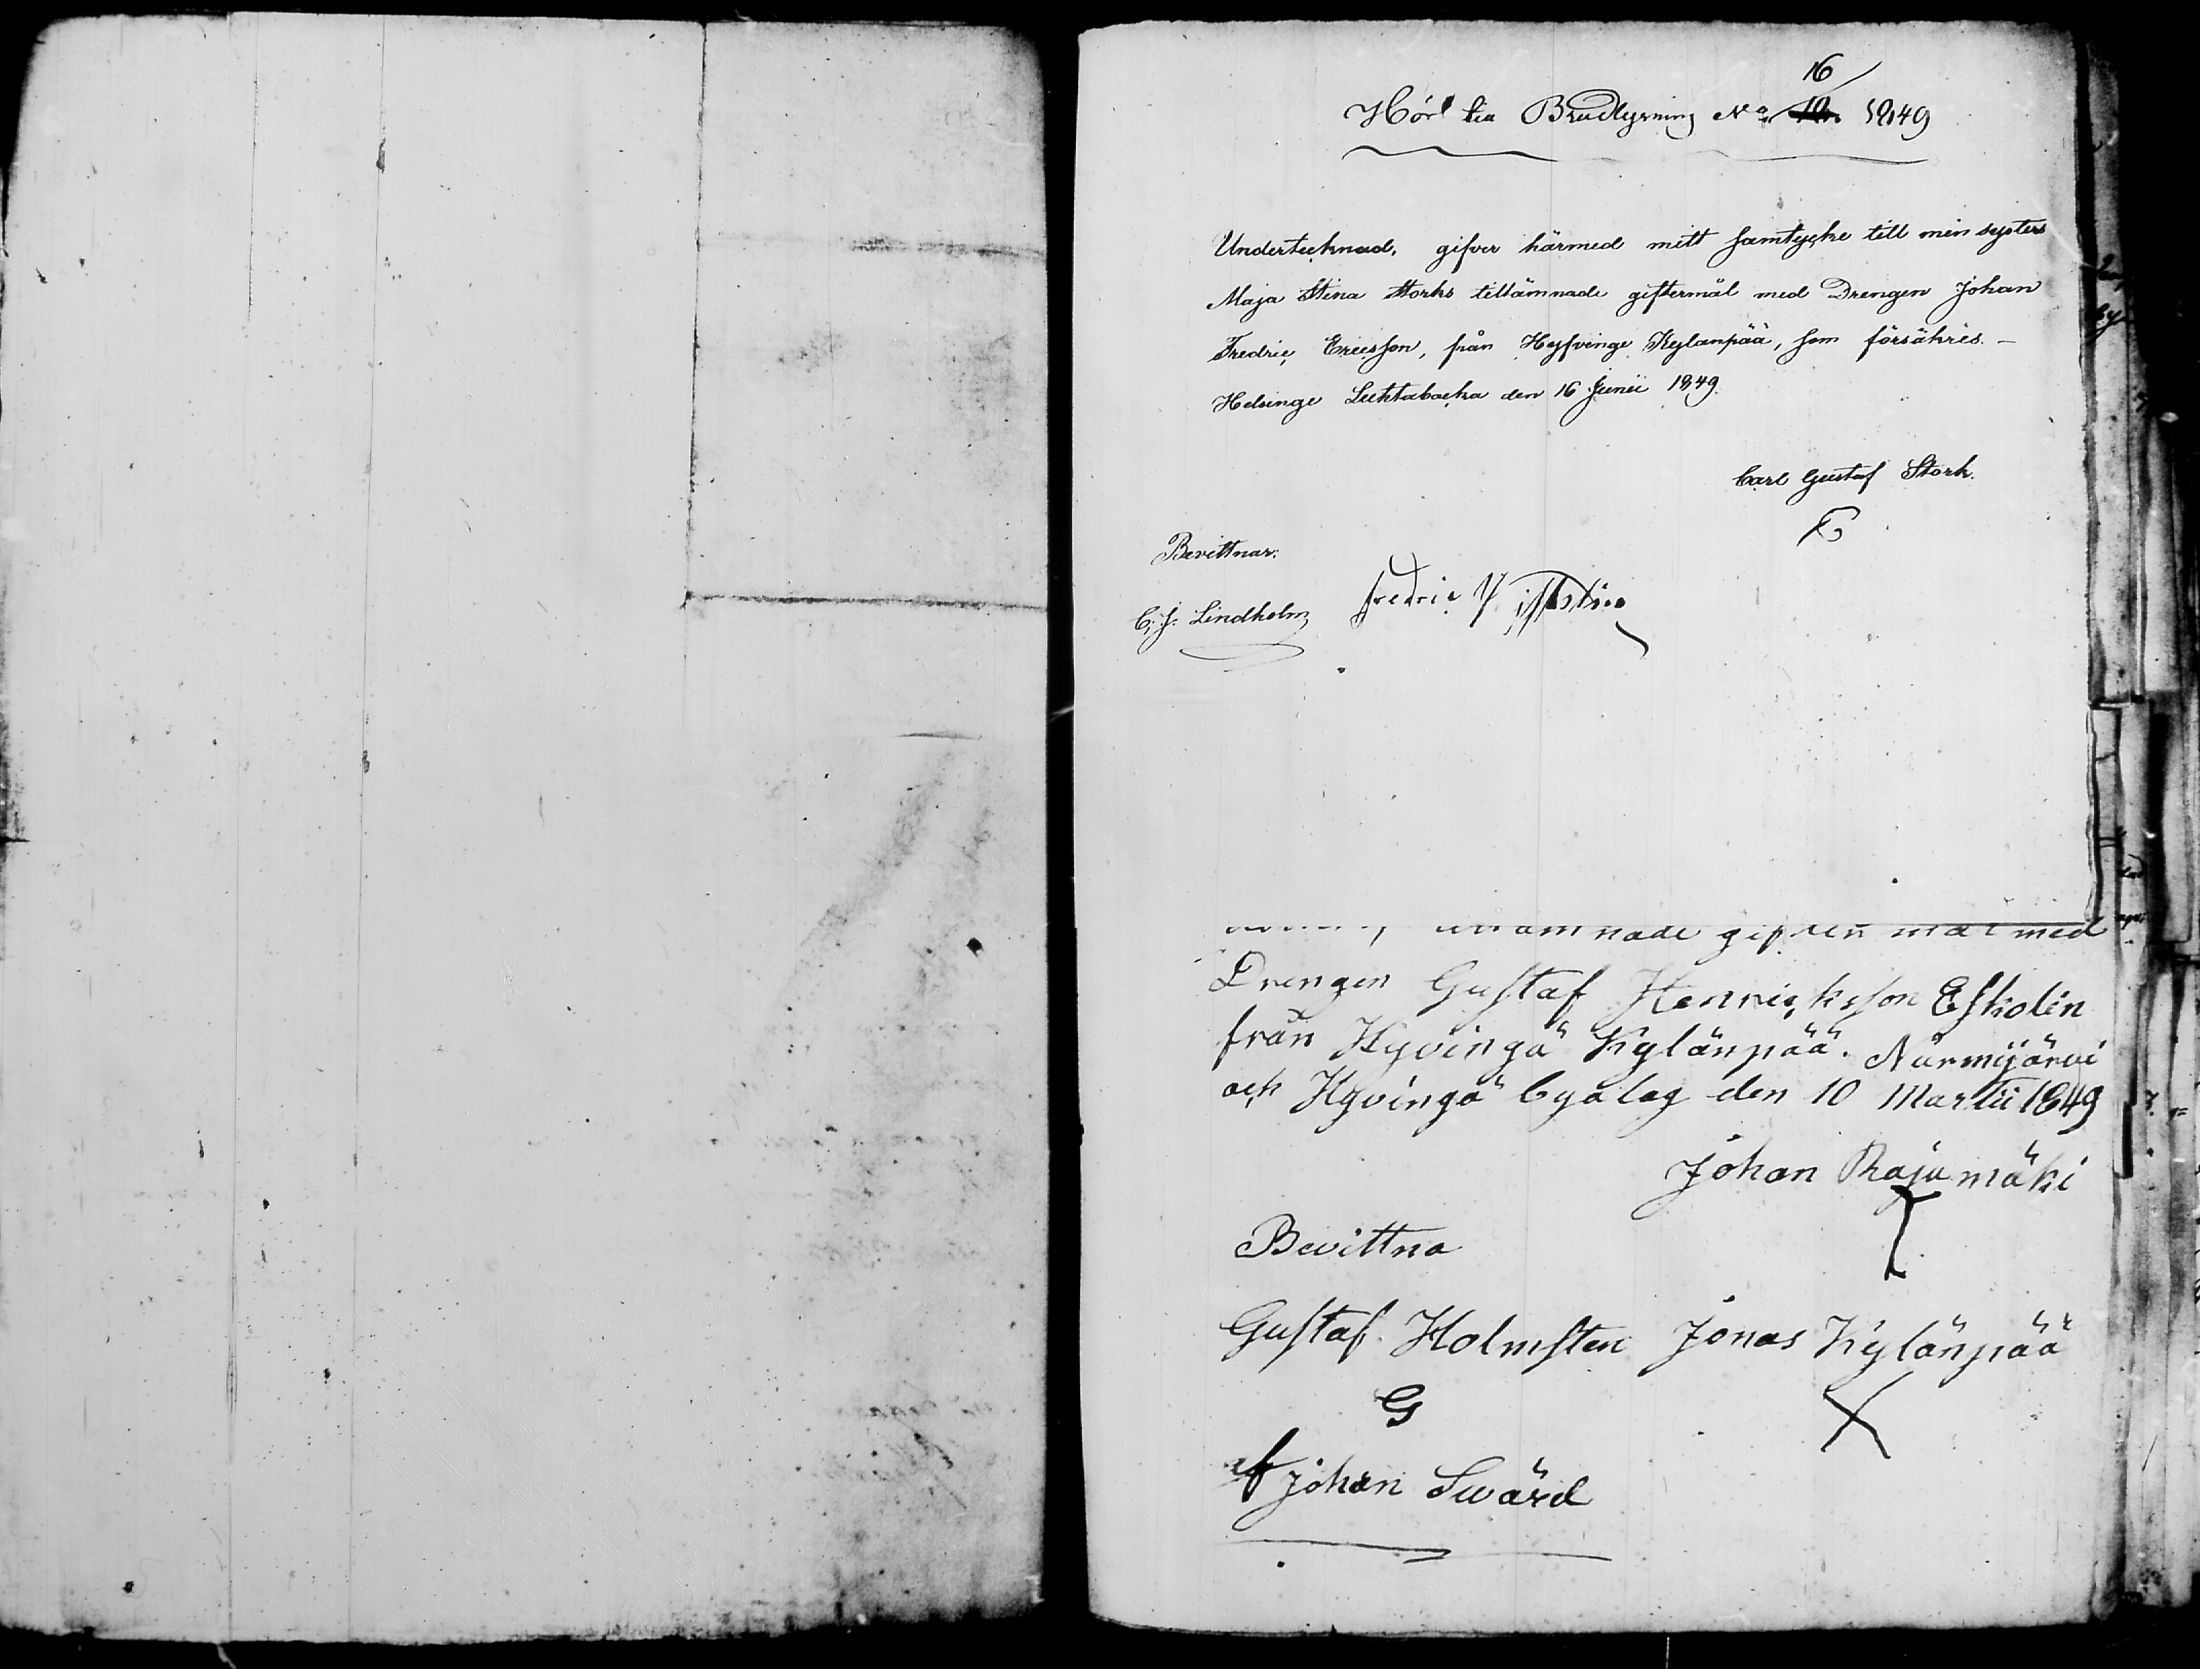 Hör till Brudlysning No 16 1849
Undertecknad, gifver härmed mitt samtycke till min systers
Maja Stina Storks tillämnade giftermål med Drengen Johan
Fredric Ericsson, från Hyfvinge Kylänpää, som försäkres. –
Helsinge Luktabacka den 16 Junii 1849.
Carl Gustaf Stork.
Bevittnar:
C. J. Lindholm Fredric
nade giften mål med
Drengen Gustaf Henricksson Eskolin
från Hyvingä Kylänpää. Nurmijärvi
ock Hyvingä byalag den 10 Martii 1849
Johan Rajamäki
Bevittna
Gustaf Holmsten Jonas Kylänpää
G X
af Johan Swärd